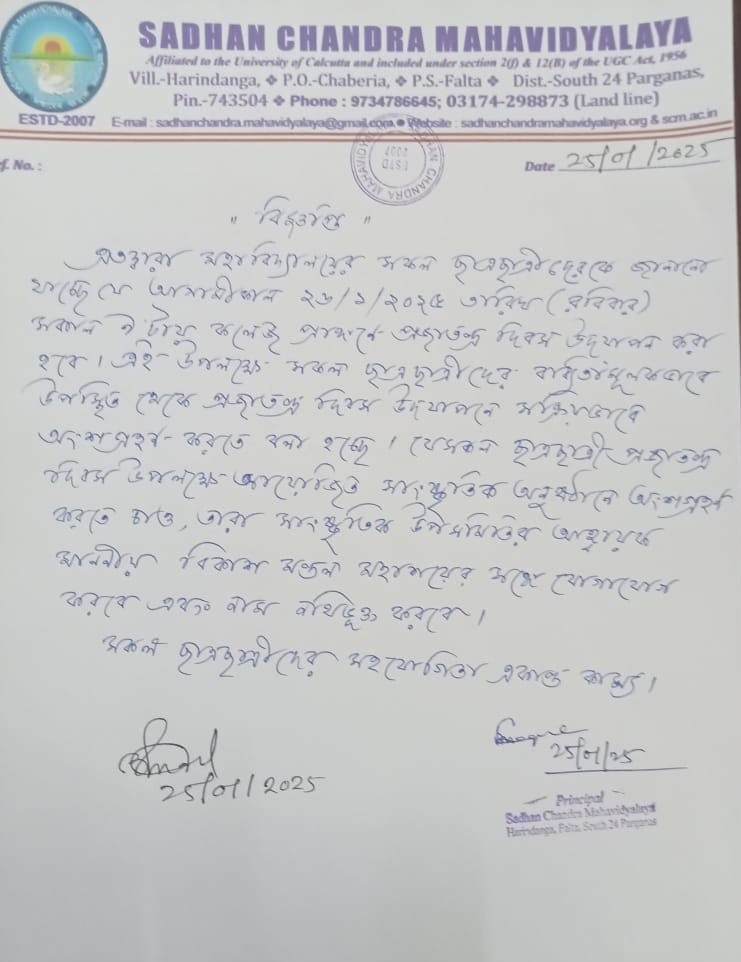 SADHAN CHANDRA MAHAVIDYALAYA
Affiliated to the University of Calcutta and included under section 2(f) & 12(B) of the UGC Act, 1956
Vill.-Harindanga, ❖ P.O.-Chaberia, ❖ P.S.-Falta ❖ Dist.-South 24 Parganas,
Pin.-743504 ❖ Phone : 9734786645; 03174-298873 (Land line)
ESTD-2007 E-mail : sadhanchandra.mahavidyalaya@gmail.com ● Website : sadhanchandramahavidyalaya.org & scm.ac.in
SADHAN CHANDRA MAHAVIDYALAYA
ESTD
2007
f. No. :
Date 25/01/2025
" বিজ্ঞপ্তি "
এতদ্বারা মহাবিদ্যালয়ের সকল ছাত্রছাত্রীদেরকে জানানো
যাচ্ছে যে আগামীকাল ২৬/১/২০২৫ তারিখ (রবিবার)
সকাল ৭ টায় কলেজ প্রাঙ্গনে প্রজাতন্ত্র দিবস উদযাপন করা
হবে। এই উপলক্ষে সকল ছাত্রছাত্রীদের বাধ্যতামূলকভাবে
উপস্থিত থেকে প্রজাতন্ত্র দিবস উদযাপনে সক্রিয়ভাবে
অংশগ্রহণ করতে বলা হচ্ছে। যেসকল ছাত্রছাত্রী প্রজাতন্ত্র
দিবস উপলক্ষে আয়োজিত সাংস্কৃতিক অনুষ্ঠানে অংশগ্রহণ
করতে চাও, তারা সাংস্কৃতিক উপসমিতির আহ্বায়ক
মাননীয় বিকাশ মন্ডল মহাশয়ের সঙ্গে যোগাযোগ
করবে এবং নাম নথিভুক্ত করবে।
সকল ছাত্রছাত্রীদের সহযোগিতা একান্ত কাম্য।
25/01/2025
25/01/25
Principal
Sadhan Chandra Mahavidyalaya
Harindanga, Falta, South 24 Parganas